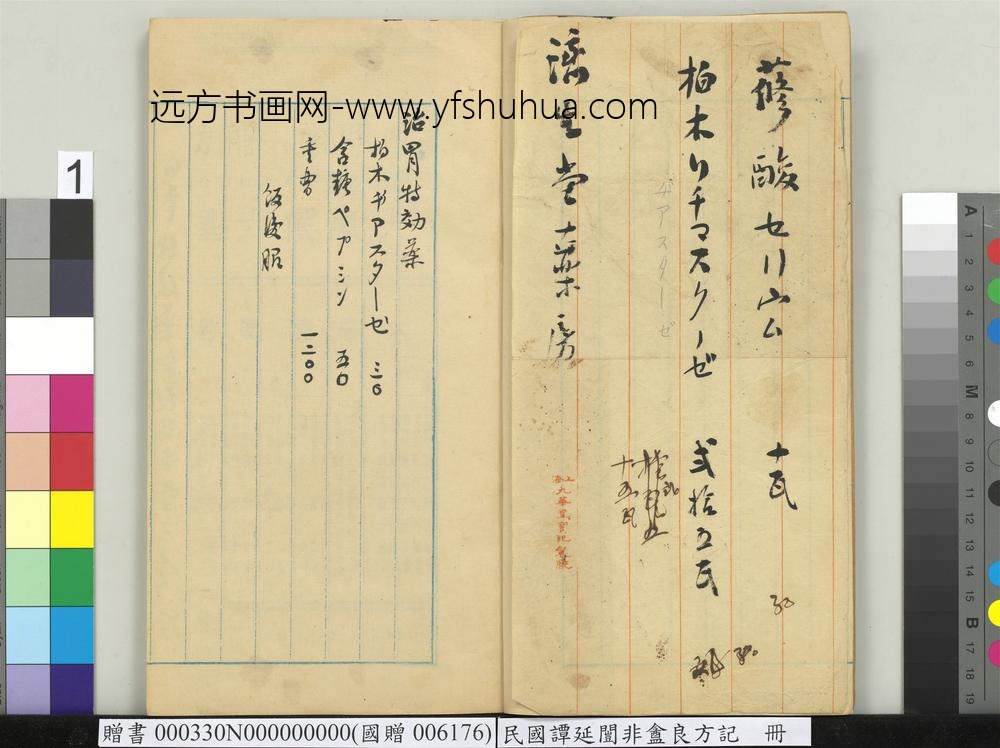 蓚酸セリウム 十瓦
柏木ヂアスターゼ 弍拾五瓦
ヂアスターゼ
十五瓦
濟生堂大藥房
上海九華堂寶記製牋
治胃特効藥
柏木ヂアスターゼ 三〇
含糖ペプシン 五〇
重曹 一二〇〇
飯後服
远方书画网-www.yfshuhua.com
1
贈書 000330N000000000(國贈 006176)
民國譚延闓非盦良方記 冊
A 1 2 3 4 5 6 M 8 9 10 11 12 13 14 15 B 17 18 19